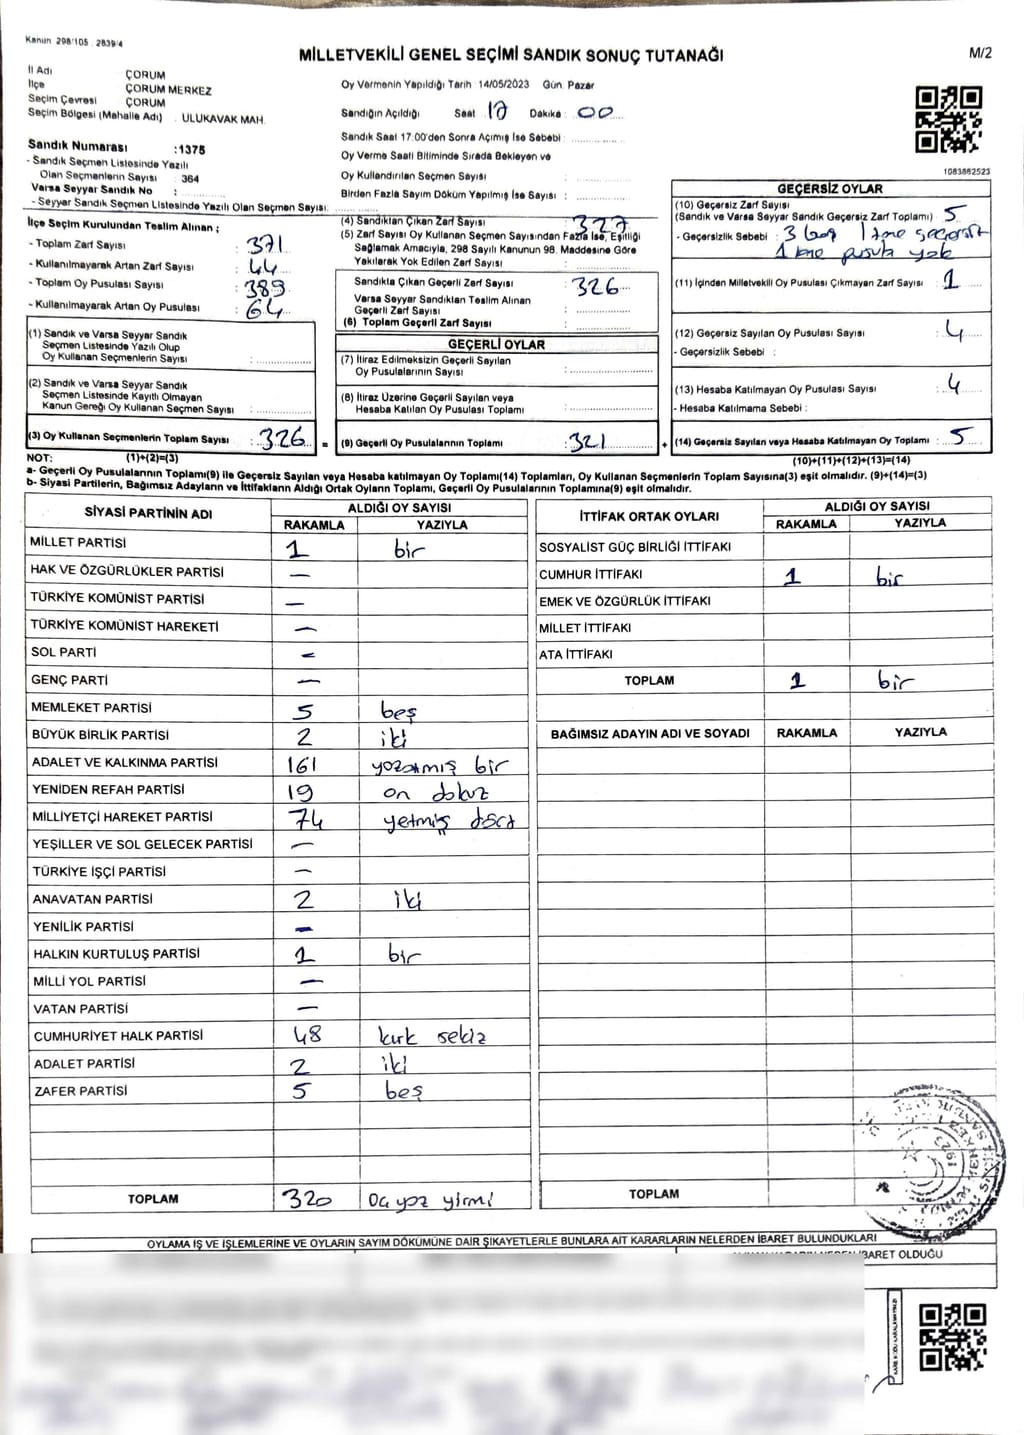 Kanun 298/105 2839/4
MİLLETVEKİLİ GENEL SEÇİMİ SANDIK SONUÇ TUTANAĞI
M/2
İl Adı ÇORUM
İlçe ÇORUM MERKEZ
Seçim Çevresi ÇORUM
Seçim Bölgesi (Mahalle Adı) : ULUKAVAK MAH.
Sandık Numarası :1375
- Sandık Seçmen Listesinde Yazılı
Olan Seçmenlerin Sayısı : 364
Varsa Seyyar Sandık No :
- Seyyar Sandık Seçmen Listesinde Yazılı Olan Seçmen Sayısı:
Oy Vermenin Yapıldığı Tarih 14/05/2023 Gün Pazar
Sandığın Açıldığı Saat 17 Dakika 00
Sandık Saat 17:00'den Sonra Açımış İse Sebebi
Oy Verme Saati Bitiminde Sırada Bekleyen ve
Oy Kullandırılan Seçmen Sayısı :
Birden Fazla Sayım Döküm Yapılmış İse Sayısı :
1083862523
İlçe Seçim Kurulundan Teslim Alınan ;
- Toplam Zarf Sayısı : 371
- Kullanılmayarak Artan Zarf Sayısı : 44
- Toplam Oy Pusulası Sayısı : 389
- Kullanılmayarak Artan Oy Pusulası : 64
(1) Sandık ve Varsa Seyyar Sandık
Seçmen Listesinde Yazılı Olup
Oy Kullanan Seçmenlerin Sayısı :
(2) Sandık ve Varsa Seyyar Sandık
Seçmen Listesinde Kayıtlı Olmayan
Kanun Gereği Oy Kullanan Seçmen Sayısı :
(3) Oy Kullanan Seçmenlerin Toplam Sayısı : 326 =
(4) Sandıktan Çıkan Zarf Sayısı 327
(5) Zarf Sayısı Oy Kullanan Seçmen Sayısından Fazla İse, Eşitliği
Sağlamak Amacıyla, 298 Sayılı Kanunun 98. Maddesine Göre
Yakılarak Yok Edilen Zarf Sayısı :
Sandıkta Çıkan Geçerli Zarf Sayısı : 326
Varsa Seyyar Sandıktan Teslim Alınan
Geçerli Zarf Sayısı :
(6) Toplam Geçerli Zarf Sayısı :
GEÇERLİ OYLAR
(7) İtiraz Edilmeksizin Geçerli Sayılan
Oy Pusulalarının Sayısı :
(8) İtiraz Üzerine Geçerli Sayılan veya
Hesaba Katılan Oy Pusulası Toplamı :
(9) Geçerli Oy Pusulalarının Toplamı : 321 +
GEÇERSİZ OYLAR
(10) Geçersiz Zarf Sayısı
(Sandık ve Varsa Seyyar Sandık Geçersiz Zarf Toplamı) 5
- Geçersizlik Sebebi : 3 boş 1 tane geçersiz
1 tane pusula yok
(11) İçinden Milletvekili Oy Pusulası Çıkmayan Zarf Sayısı : 1
(12) Geçersiz Sayılan Oy Pusulası Sayısı : 4
- Geçersizlik Sebebi :
(13) Hesaba Katılmayan Oy Pusulası Sayısı : 4
- Hesaba Katılmama Sebebi :
(14) Geçersiz Sayılan veya Hesaba Katılmayan Oy Toplamı : 5
NOT: (1)+(2)=(3)
(10)+(11)+(12)+(13)=(14)
a- Geçerli Oy Pusulalarının Toplamı(9) ile Geçersiz Sayılan veya Hesaba katılmayan Oy Toplamı(14) Toplamları, Oy Kullanan Seçmenlerin Toplam Sayısına(3) eşit olmalıdır. (9)+(14)=(3)
b- Siyasi Partilerin, Bağımsız Adayların ve İttifakların Aldığı Ortak Oyların Toplamı, Geçerli Oy Pusulalarının Toplamına(9) eşit olmalıdır.
SİYASİ PARTİNİN ADI ALDIĞI OY SAYISI
RAKAMLA YAZIYLA
MİLLET PARTİSİ 1 bir
HAK VE ÖZGÜRLÜKLER PARTİSİ —
TÜRKİYE KOMÜNİST PARTİSİ —
TÜRKİYE KOMÜNİST HAREKETİ —
SOL PARTİ —
GENÇ PARTİ —
MEMLEKET PARTİSİ 5 beş
BÜYÜK BİRLİK PARTİSİ 2 iki
ADALET VE KALKINMA PARTİSİ 161 yüzatmış bir
YENİDEN REFAH PARTİSİ 19 on dokuz
MİLLİYETÇİ HAREKET PARTİSİ 74 yetmiş dört
YEŞİLLER VE SOL GELECEK PARTİSİ —
TÜRKİYE İŞÇİ PARTİSİ —
ANAVATAN PARTİSİ 2 iki
YENİLİK PARTİSİ —
HALKIN KURTULUŞ PARTİSİ 1 bir
MİLLİ YOL PARTİSİ —
VATAN PARTİSİ —
CUMHURİYET HALK PARTİSİ 48 kırk sekiz
ADALET PARTİSİ 2 iki
ZAFER PARTİSİ 5 beş
TOPLAM 320 üç yüz yirmi
İTTİFAK ORTAK OYLARI ALDIĞI OY SAYISI
RAKAMLA YAZIYLA
SOSYALİST GÜÇ BİRLİĞİ İTTİFAKI
CUMHUR İTTİFAKI 1 bir
EMEK VE ÖZGÜRLÜK İTTİFAKI
MİLLET İTTİFAKI
ATA İTTİFAKI
TOPLAM 1 bir
BAĞIMSIZ ADAYIN ADI VE SOYADI RAKAMLA YAZIYLA
TOPLAM
1923
OYLAMA İŞ VE İŞLEMLERİNE VE OYLARIN SAYIM DÖKÜMÜNE DAİR ŞİKAYETLERLE BUNLARA AİT KARARLARIN NELERDEN İBARET BULUNDUKLARI
İBARET OLDUĞU